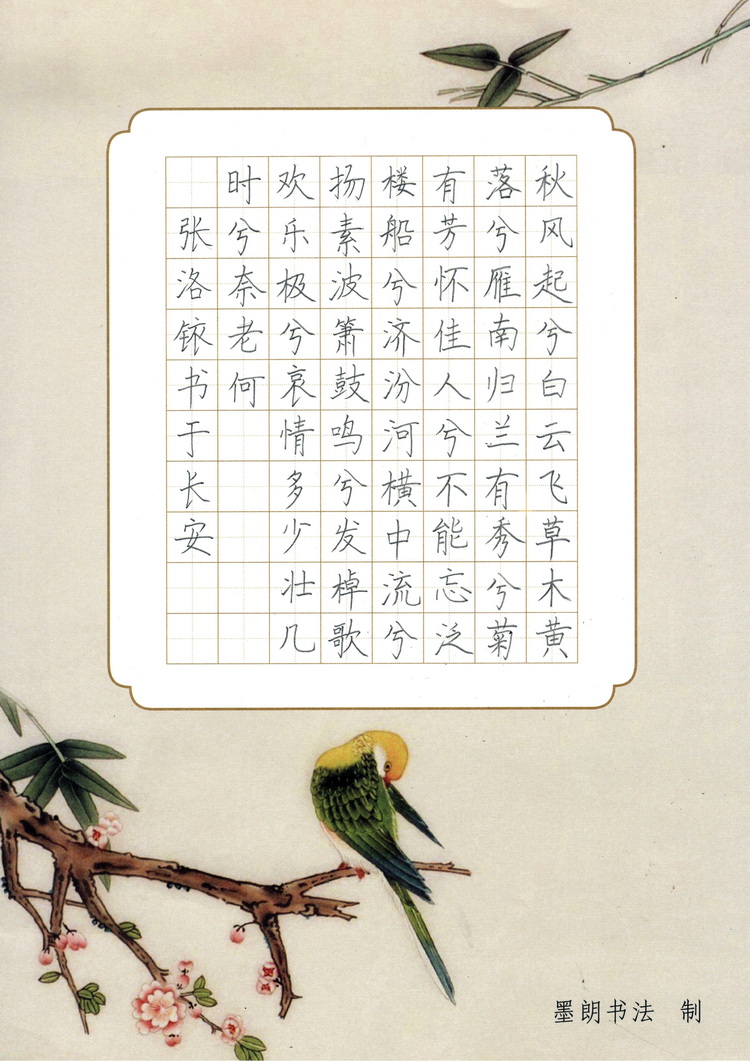 秋风起兮白云飞草木黄
落兮雁南归兰有秀兮菊
有芳怀佳人兮不能忘泛
楼船兮济汾河横中流兮
扬素波箫鼓鸣兮发棹歌
欢乐极兮哀情多少壮几
时兮奈老何
张洛铱书于长安
墨朗书法 制